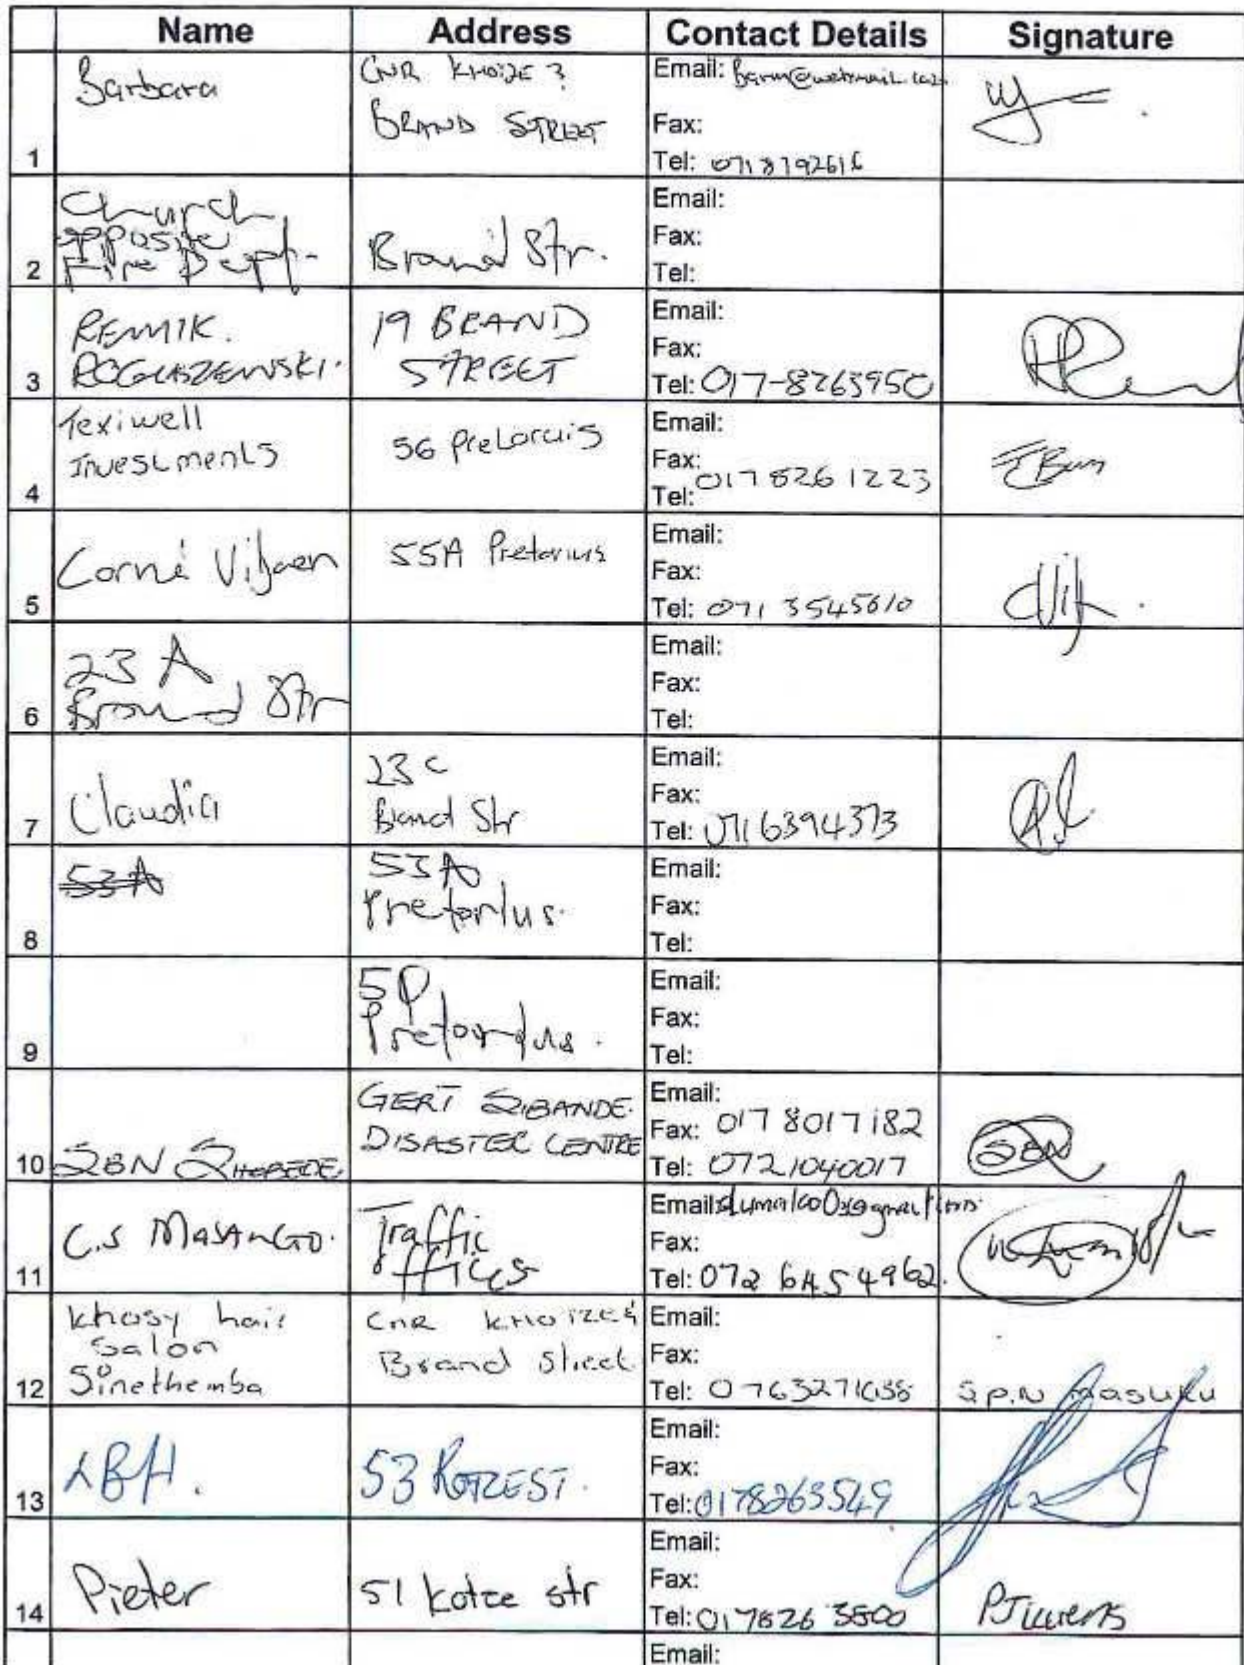 Name Address Contact Details Signature
1 Barbara
CNR KHOZE &
BRAND STREET
Email:
Fax:
Tel: 0718792616
2 Church
opposite
Fire Dept.
Brand Str.
Email:
Fax:
Tel:
3 REMIK.
ROGUSZEWSKI.
19 BRAND
STREET
Email:
Fax:
Tel: 017-8263950
4 Texiwell
Investments
56 Pretoruis
Email:
Fax:
Tel: 017 826 1223
5 Corné Viljoen
55A Pretorius
Email:
Fax:
Tel: 071 3545610
6 23 A
Brand Str
Email:
Fax:
Tel:
7 Claudia
23 C
Brand Str
Email:
Fax:
Tel: 0716394373
8 53A
53A
Pretorius.
Email:
Fax:
Tel:
9
Pretorius.
Email:
Fax:
Tel:
10 SBN
GERT SIBANDE
DISASTER CENTRE
Email:
Fax: 017 8017182
Tel: 0721040017
SBN
11 C.S MASANGO.
Traffic
Offices
Email:
Fax:
Tel: 072 645 4962.
12 Khosy hair
Salon
Sinethemba
CNR
Brand Street
Email:
Fax:
Tel:
S.P.N Masuku
13 LBH.
53 KOTZE ST.
Email:
Fax:
Tel: 0178263549
14 Pieter
51 Kotze str
Email:
Fax:
Tel: 017826 3500
PJ Willems
Email: